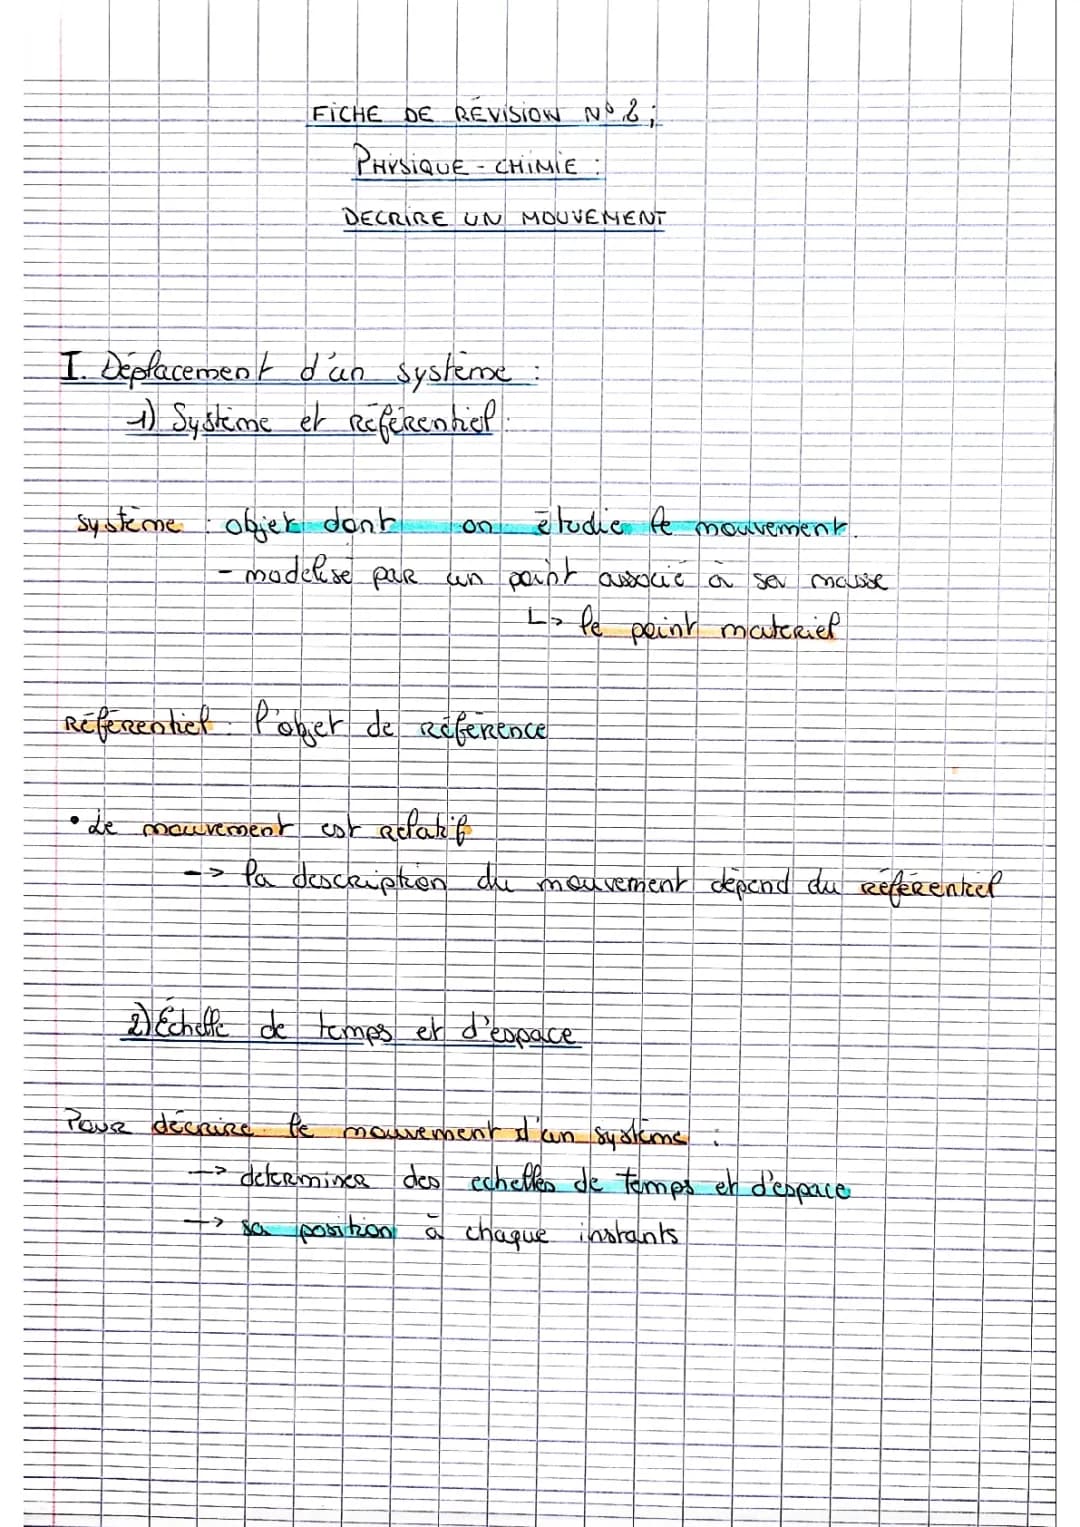 FICHE DE RÉVISION N° 2 ;
PHYSIQUE - CHIMIE :
DECRIRE UN MOUVEMENT
I. Déplacement d'un système :
1) Système et Référentiel.
système : objet dont on étudie le mouvement.
- modélisé par un point associé à sa masse
↳ le point materiel
Référentiel : l'objet de référence
• Le mouvement est relatif
--> la description du mouvement dépend du référentiel
2) Échelle de temps et d'espace
Pour décrire le mouvement d'un système :
--> determiner des echelles de temps et d'espace
--> sa position à chaque instants